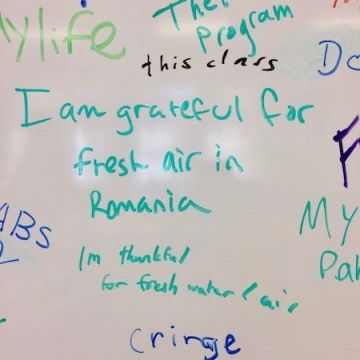 My life
Their
Program
this class
Do
I am grateful for
fresh air in
Romania
ABS
My
Im thankful
for fresh water / air
cringe